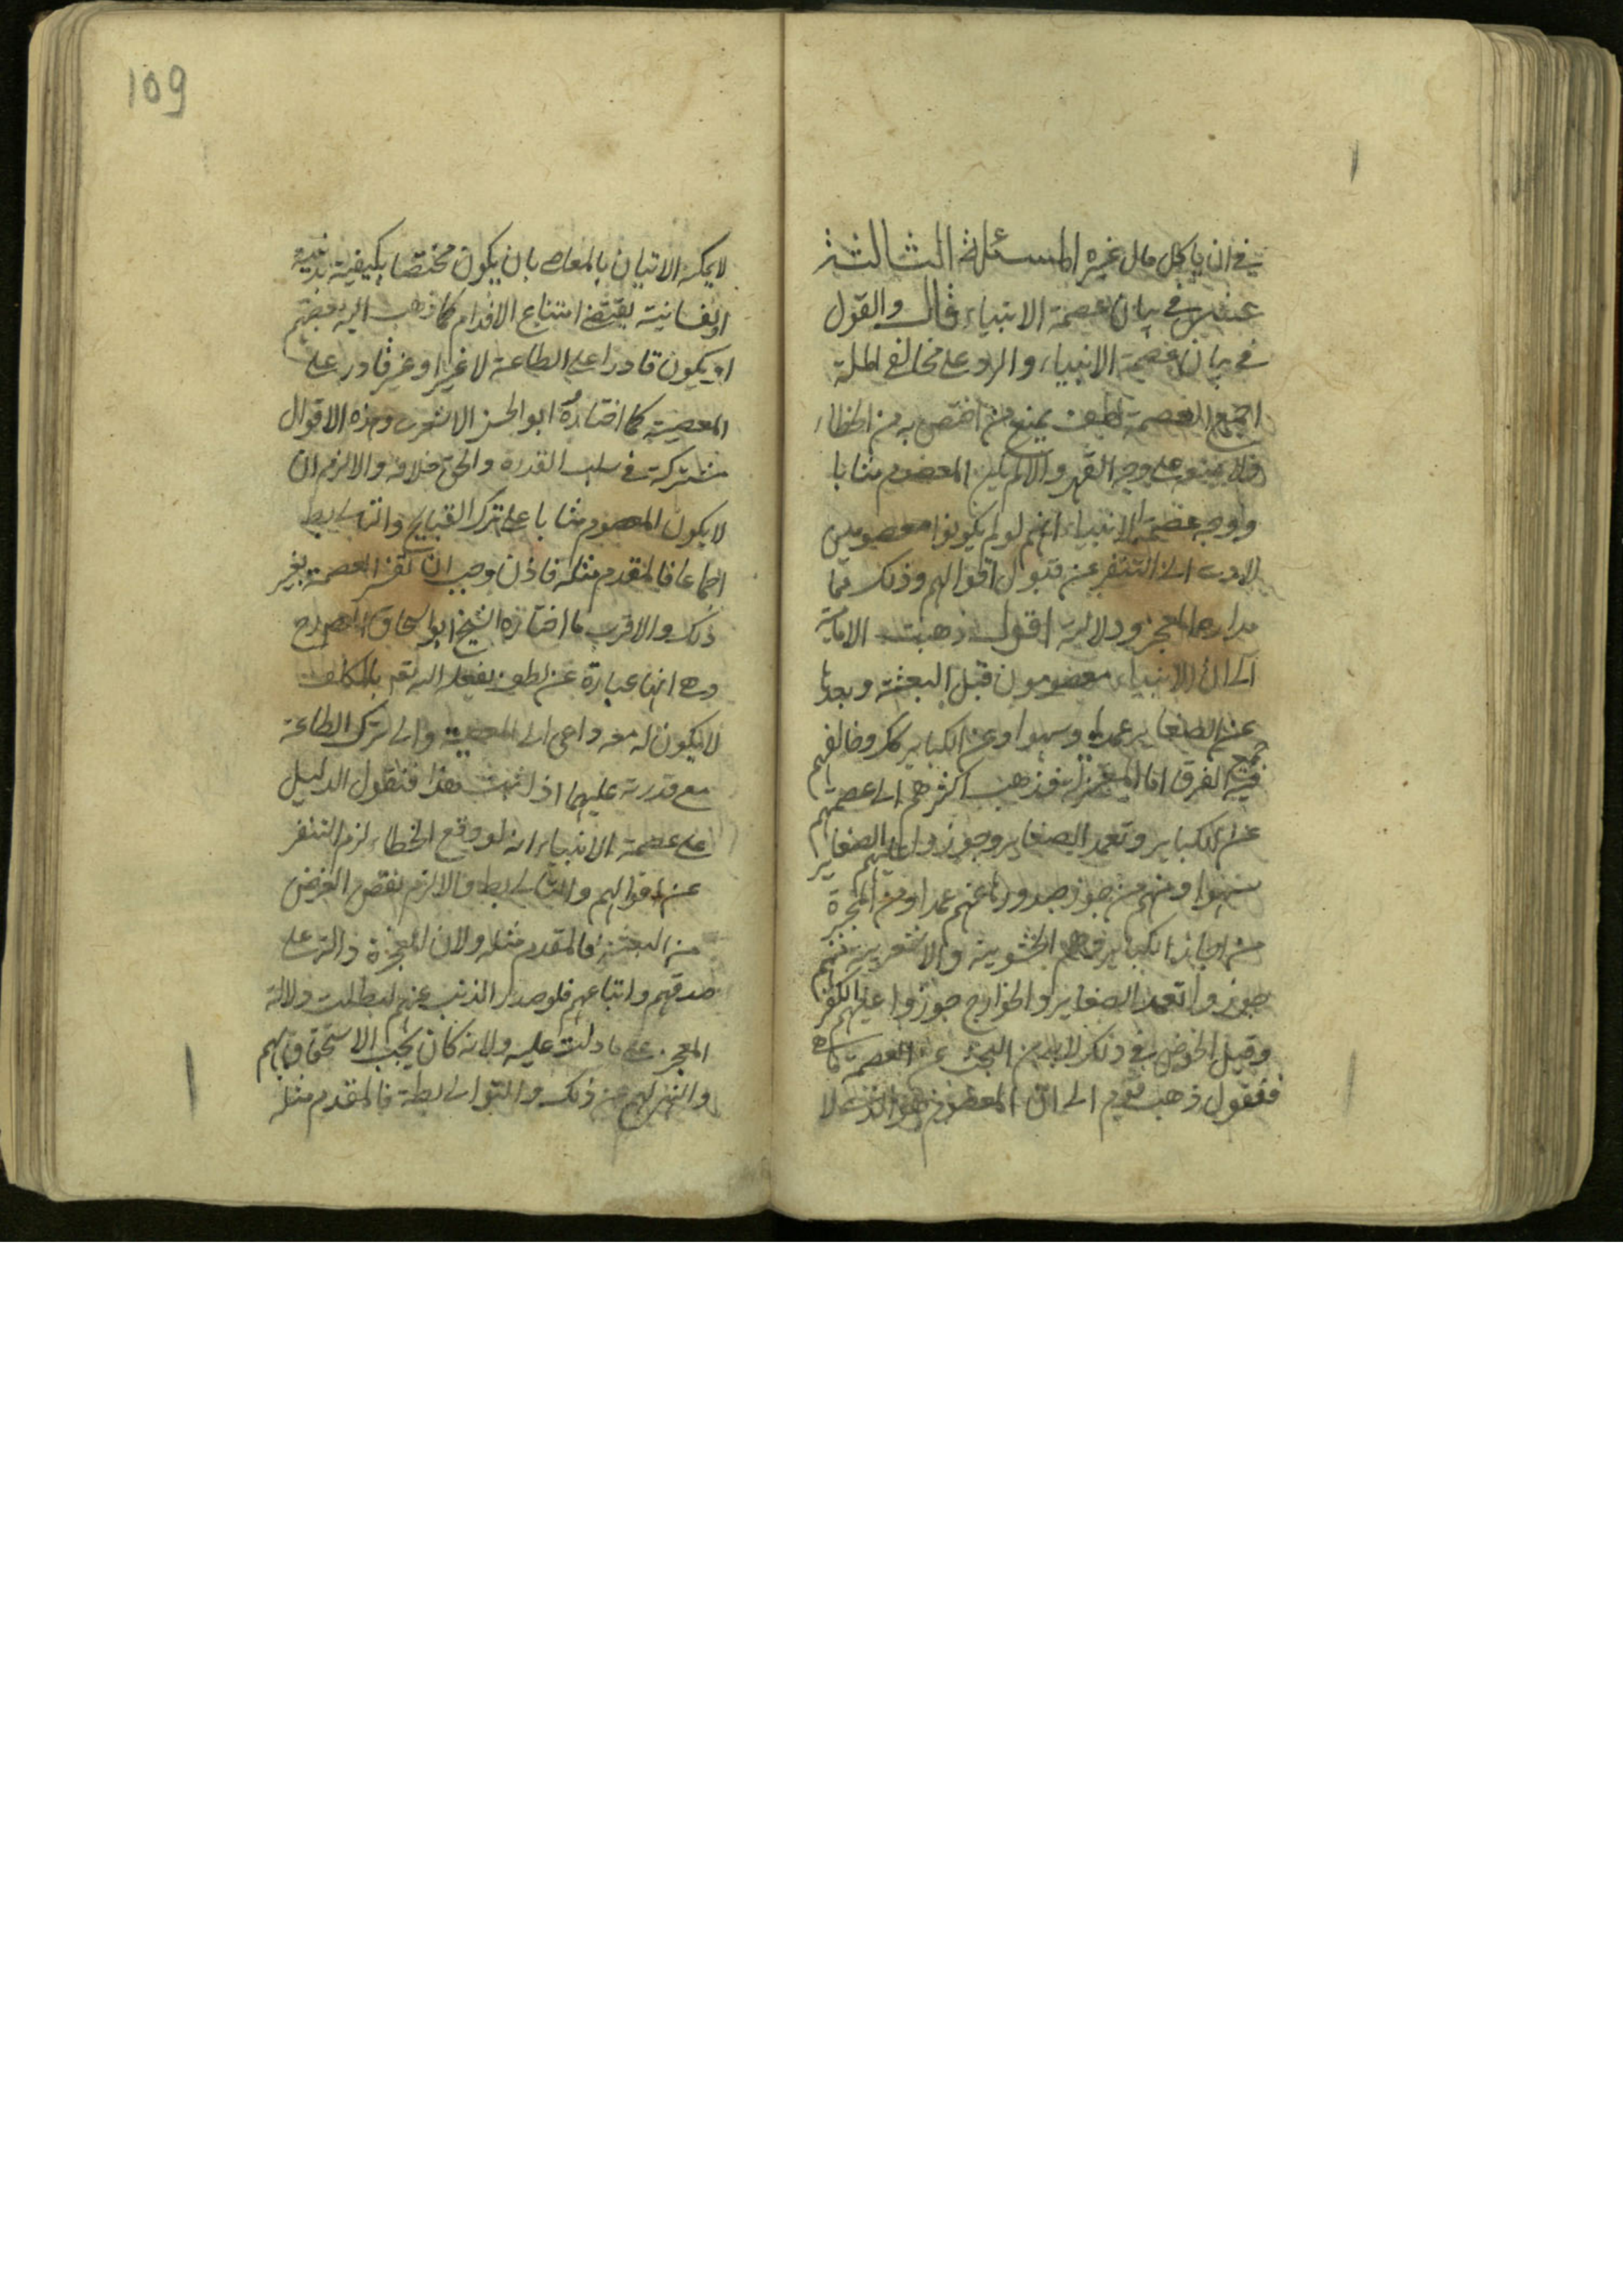 في ان ياكل مال غيره المسئلة الثالثة
عشر في بيان عصمة الانبياء قال والقول
في بيان عصمة الانبياء والرد على مخالفي الملة
اجمع العصمة لطف يمنع من اختص به من الخطاء
ولا يمنعه على وجه القهر والا لم يكن المعصوم مثابا
ووجه عصمة الانبياء انهم لو لم يكونوا معصومين
لادى الى التنفير عن قبول اقوالهم وذلك مما
مدار المعجز ودلالته اقول ذهبت الامامية
الى ان الانبياء معصومون قبل البعثة وبعدها
عن الصغاير عمدا وسهوا وعن الكباير كك وخالفهم
فيه جميع الفرق اما المعتزلة فذهب اكثرهم الى عصمتهم
عن الكباير وتعمد الصغاير وجوزوا عليهم الصغاير
سهوا ومنهم من جوز صدورها عنهم عمدا ومن المجبرة
من اجاز الكباير وهم الحشوية والاشعرية منهم
جوزوا تعمد الصغاير والخوارج جوزوا عليهم الكفر
وقبل الخوض في ذلك لابد من البحث عن العصمة ما هي
فنقول ذهب قوم الى ان المعصوم هو الذي لا
109
لا يمكنه الاتيان بالمعاصي بان يكون مختصا بكيفية بدنية
او نفسانية يقتضي امتناع الاقدام كما ذهب اليه بعضهم
او يكون قادرا على الطاعة لا غير او غير قادر على
المعصية كما اختاره ابو الحسن الاشعري وهذه الاقوال
مشتركة في سلب القدرة والحق خلافه والا لزم ان
لا يكون المعصوم مثابا على ترك القبايح والتالي بط
اجماعا فالمقدم مثله فاذن وجب ان تفسر العصمة بغير
ذلك والاقرب ما اختاره الشيخ ابو اسحاق المصـ رح
وهي انها عبارة عن لطف يفعله الله تعـ بالمكلف
لا يكون له معه داعي الى المعصية والى ترك الطاعة
مع قدرته عليهما اذا ثبت هذا فنقول الدليل
على عصمة الانبياء انه لو وقع الخطاء لزم التنفر
عن اقوالهم والتالي بط والا لزم نقض الغرض
من البعثة فالمقدم مثله ولان المعجزة دالة على
صدقهم واتباعهم فلو صدر الذنب عنهم لبطلت دلالة
المعجز على ما دلت عليه ولانه كان يجب الاستخفاف بهم
والنهر لهم من ذلك والتوالي بطة فالمقدم مثله